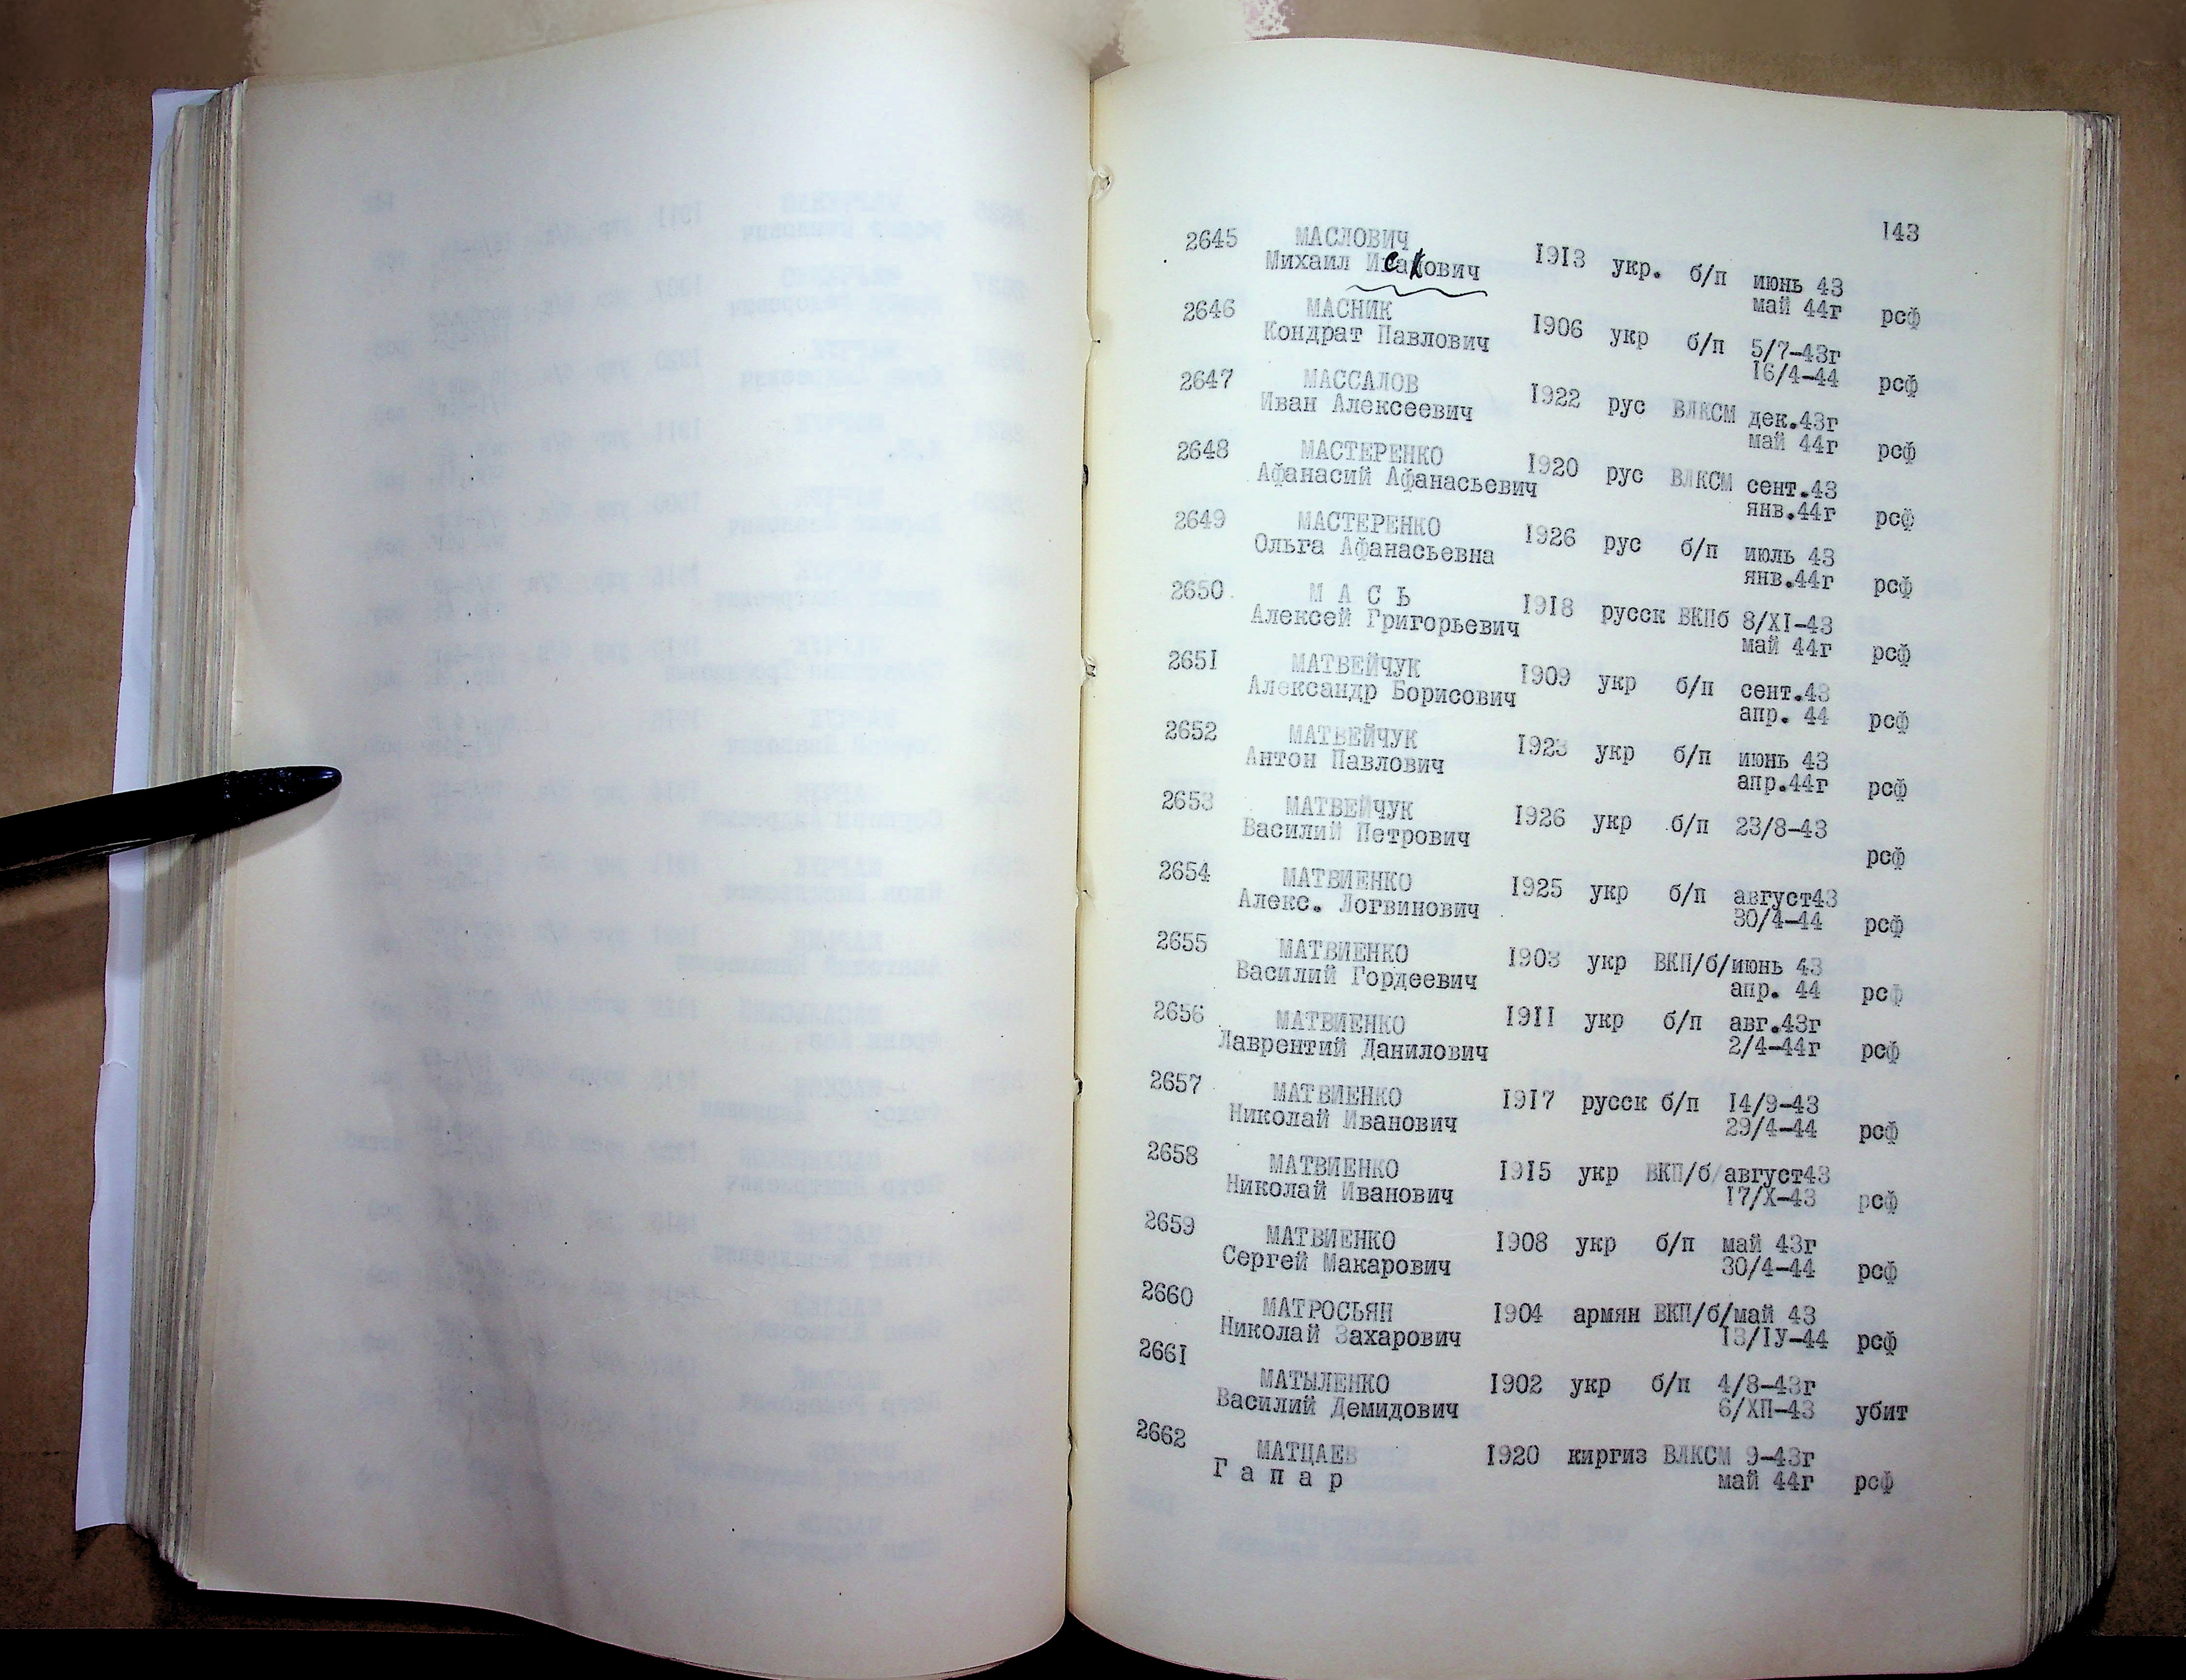 143
2645 МАСЛОВИЧ
Михаил Исакович 1913 укр. б/п июнь 43
май 44г рсф
2646 МАСНИК
Кондрат Павлович 1906 укр б/п 5/7-43г
16/4-44 рсф
2647 МАССАЛОВ
Иван Алексеевич 1922 рус ВЛКСМ дек.43г
май 44г рсф
2648 МАСТЕРЕНКО
Афанасий Афанасьевич 1920 рус ВЛКСМ сент.43
янв.44г рсф
2649 МАСТЕРЕНКО
Ольга Афанасьевна 1926 рус б/п июль 43
янв.44г рсф
2650 М А С Ь
Алексей Григорьевич 1918 русск ВКПб 8/XI-43
май 44г рсф
2651 МАТВЕЙЧУК
Александр Борисович 1909 укр б/п сент.43
апр. 44 рсф
2652 МАТВЕЙЧУК
Антон Павлович 1923 укр б/п июнь 43
апр.44г рсф
2653 МАТВЕЙЧУК
Василий Петрович 1926 укр б/п 23/8-43
рсф
2654 МАТВИЕНКО
Алекс. Логвинович 1925 укр б/п август43
30/4-44 рсф
2655 МАТВИЕНКО
Василий Гордеевич 1903 укр ВКП/б/июнь 43
апр. 44 рсф
2656 МАТВИЕНКО
Лаврентий Данилович 1911 укр б/п авг.43г
2/4-44г рсф
2657 МАТВИЕНКО
Николай Иванович 1917 русск б/п 14/9-43
29/4-44 рсф
2658 МАТВИЕНКО
Николай Иванович 1915 укр ВКП/б/август43
17/X-43 рсф
2659 МАТВИЕНКО
Сергей Макарович 1908 укр б/п май 43г
30/4-44 рсф
2660 МАТРОСЬЯН
Николай Захарович 1904 армян ВКП/б/май 43
13/IУ-44 рсф
2661 МАТЫЛЕНКО
Василий Демидович 1902 укр б/п 4/8-43г
6/ХП-43 убит
2662 МАТЦАЕВ
Г а п а р 1920 киргиз ВЛКСМ 9-43г
май 44г рсф